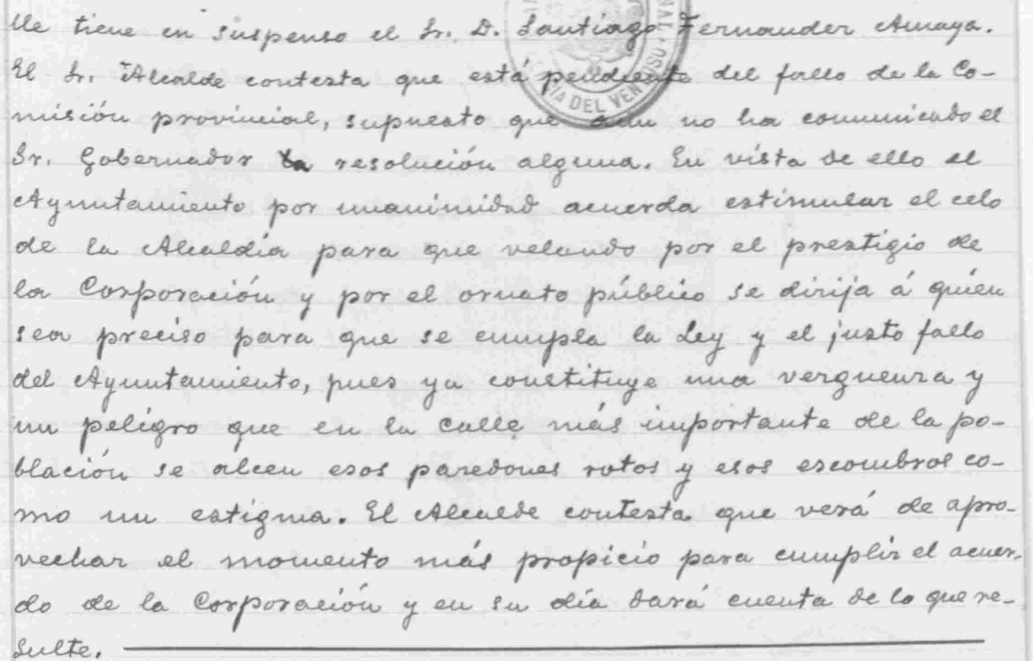 lle tiene en suspenso el Sr. D. Santiago Fernander Amaya.
El Sr. Alcalde contesta que está pendiente del fallo de la Co-
misión provincial, supuesto que aun no ha comunicado el
Sr. Gobernador la resolución alguna. En vista de ello el
Ayuntamiento por unanimidad acuerda estimular el celo
de la Alcaldía para que velando por el prestigio de
la Corporación y por el ornato público se dirija á quién
sea preciso para que se cumpla la Ley y el justo fallo
del Ayuntamiento, pues ya constituye una vergueura y
un peligro que en la calle más importante de la po-
blación se alcen esos paredones rotos y esos escombros co-
mo un estigma. El Alcalde contesta que verá de apro-
vechar el momento más propicio para cumplir el acuer-
do de la Corporación y en su día dará cuenta de lo que re-
sulte.
IA DEL VENTOSO